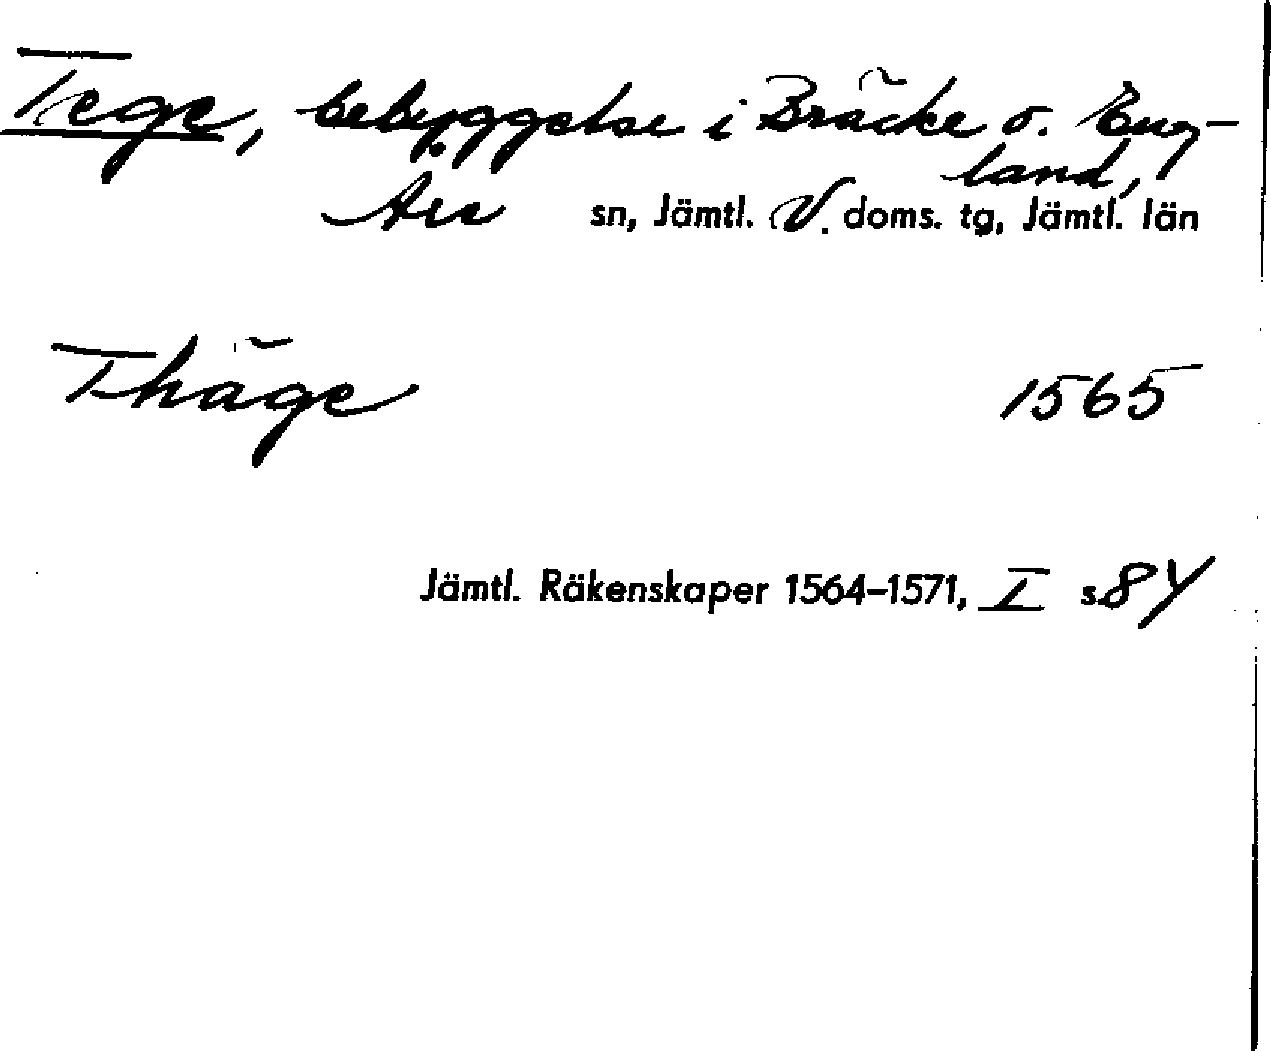 Tege, bebyggelse i Bräcke o. Eng-
land,
Åre sn, Jämtl. V. doms. tg, Jämtl. län
Thäge 1565
Jämtl. Räkenskaper 1564-1571, I s.84